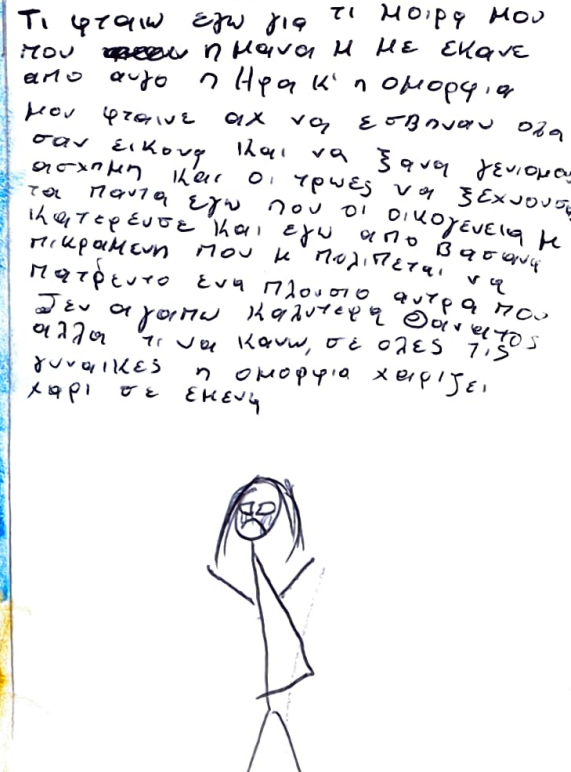 Τι φταιω εγω για τι μοιρα μου
που η μανα μ με εκανε
απο αυγο η Ηρα κ' η ομορφια
μου φταινε αχ να εσβηναν ολα
σαν εικονα και να ξανα
ασχημη και οι τρωες να ξεχνουσα
τα παντα εγω που οι οικογενεια μ
κατερευσε και εγω απο βασανα
πικραμενη που μ πολιπεται να
πατρευτο ενα πλουσιο αντρα που
δεν αγαπω καλυτερα Θανατος
αλλα τι να κανω, σε ολες τις
γυναικες η ομορφια χαριζει
χαρι σε εμενα